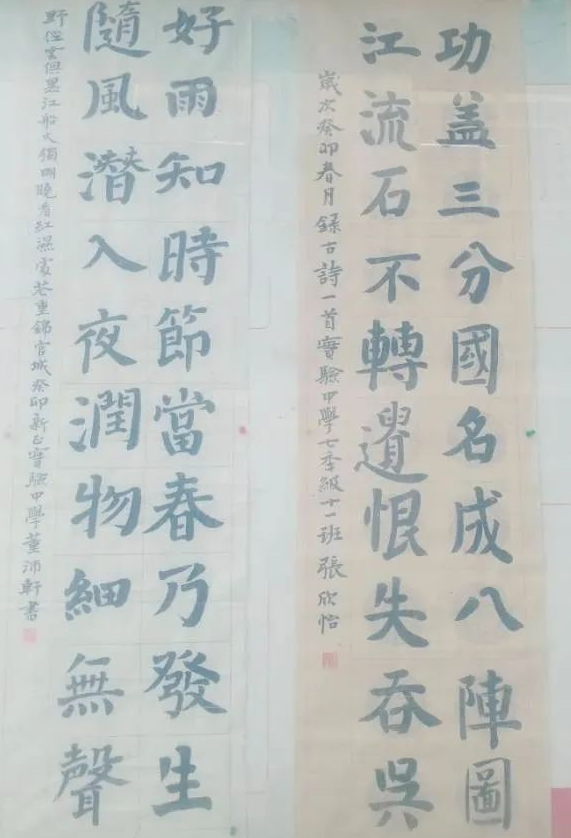 功蓋三分國名成八陣圖
江流石不轉遺恨失吞吳
歲次癸卯春月錄古詩一首實驗中學七年級十一班張欣怡
好雨知時節當春乃發生
隨風潛入夜潤物細無聲
野徑雲俱黑江船火獨明曉看紅濕處花重錦官城癸卯新正實驗中學董沛軒書